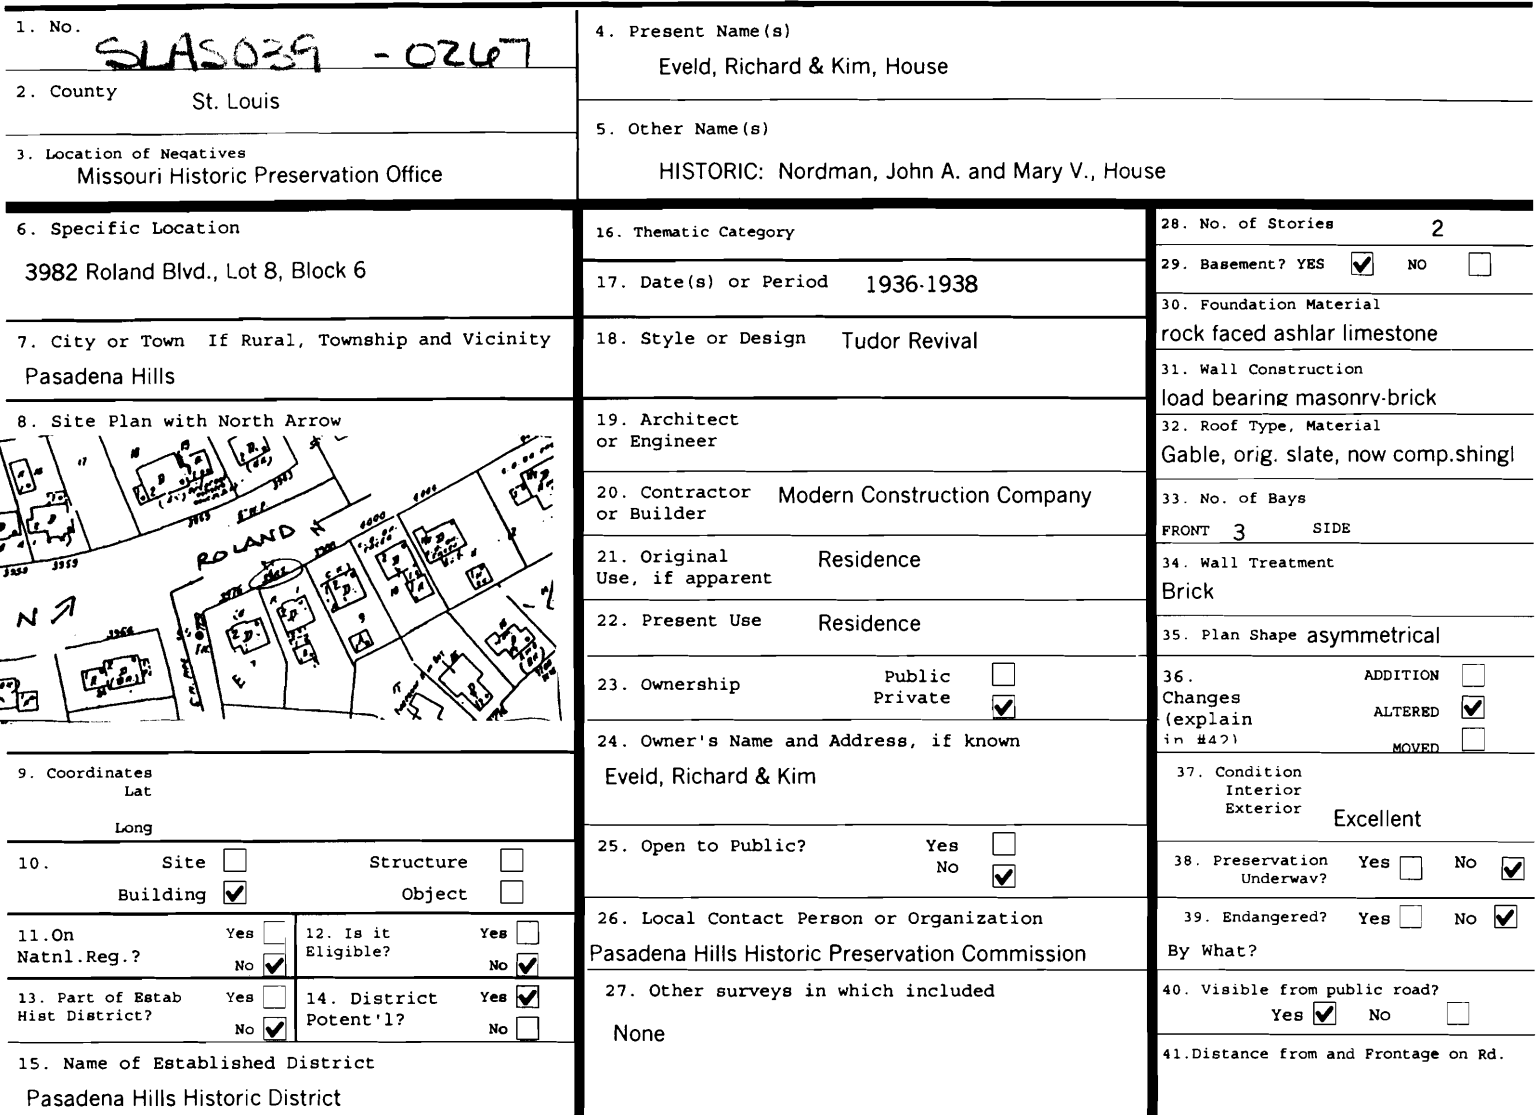 1. No. SLAS039 -0267
2. County St. Louis
3. Location of Negatives
Missouri Historic Preservation Office
4. Present Name(s)
Eveld, Richard & Kim, House
5. Other Name(s)
HISTORIC: Nordman, John A. and Mary V., House
6. Specific Location
3982 Roland Blvd., Lot 8, Block 6
7. City or Town If Rural, Township and Vicinity
Pasadena Hills
8. Site Plan with North Arrow
ROLAND
N
3966
9. Coordinates
Lat
Long
10. Site Structure
Building ✓ Object
11.On Natnl.Reg.? Yes No ✓
12. Is it Eligible? Yes No ✓
13. Part of Estab Hist District? Yes No ✓
14. District Potent'l? Yes ✓ No
15. Name of Established District
Pasadena Hills Historic District
16. Thematic Category
17. Date(s) or Period 1936-1938
18. Style or Design Tudor Revival
19. Architect
or Engineer
20. Contractor Modern Construction Company
or Builder
21. Original Residence
Use, if apparent
22. Present Use Residence
23. Ownership Public
Private ✓
24. Owner's Name and Address, if known
Eveld, Richard & Kim
25. Open to Public? Yes
No ✓
26. Local Contact Person or Organization
Pasadena Hills Historic Preservation Commission
27. Other surveys in which included
None
28. No. of Stories 2
29. Basement? YES ✓ NO
30. Foundation Material
rock faced ashlar limestone
31. Wall Construction
load bearing masonry-brick
32. Roof Type, Material
Gable, orig. slate, now comp.shingl
33. No. of Bays
FRONT 3 SIDE
34. Wall Treatment
Brick
35. Plan Shape asymmetrical
36. ADDITION
Changes
(explain ALTERED ✓
in #42) MOVED
37. Condition
Interior
Exterior Excellent
38. Preservation Yes No ✓
Underway?
39. Endangered? Yes No ✓
By What?
40. Visible from public road?
Yes ✓ No
41.Distance from and Frontage on Rd.